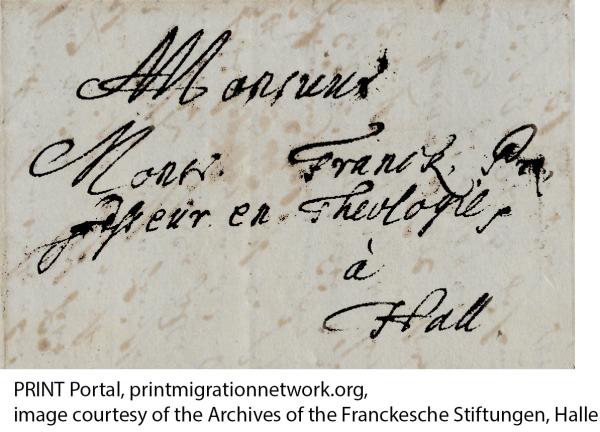 A Monsieur
Monsr. Franck, Pro,
fesseur en Theologie,
à
Hall
PRINT Portal, printmigrationnetwork.org,
image courtesy of the Archives of the Franckesche Stiftungen, Halle